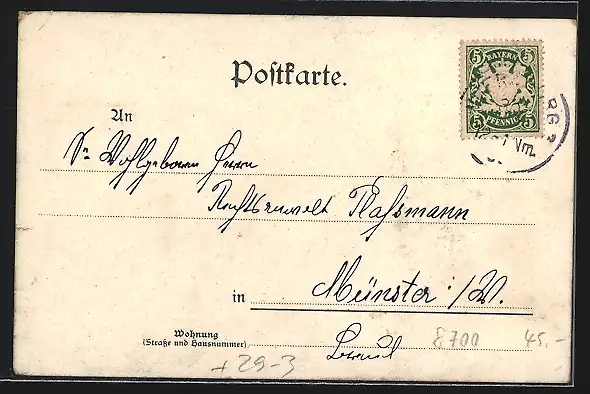 Postkarte.
BAYERN
5 5
PFENNIG
5 5
Vm.
An
Sr Wohlgeboren Herrn
Rechtsanwalt Plassmann
in Münster i/W.
Wohnung
(Straße und Hausnummer)
8700 45.-
+29-3